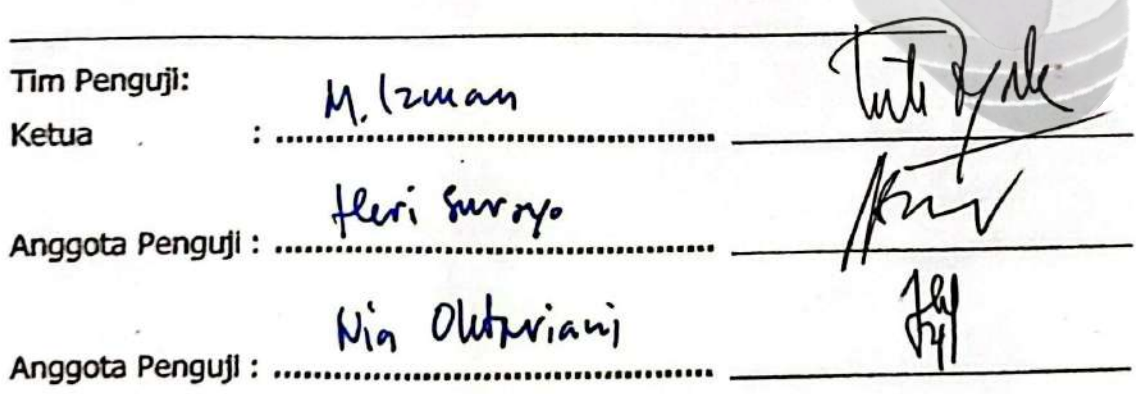 Tim Penguji:
Ketua : M. Izman
Anggota Penguji : Heri Suroyo
Anggota Penguji : Nia Oktaviani